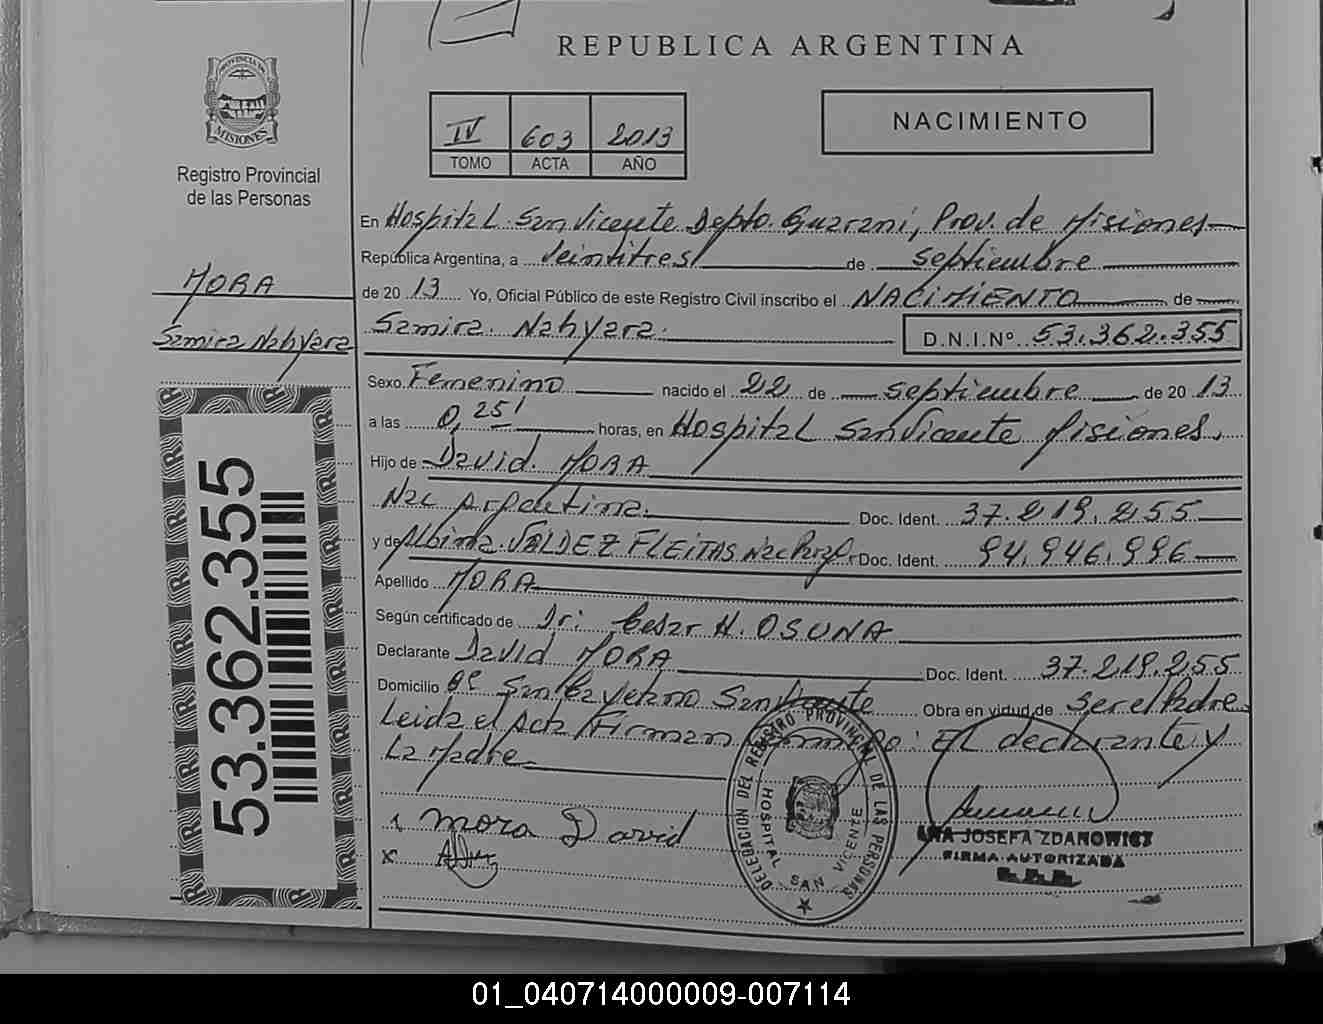 REPUBLICA ARGENTINA
PROVINCIA DE
MISIONES
Registro Provincial
de las Personas
IV 603 2013
TOMO ACTA AÑO
NACIMIENTO
MORA
Samira Nahyara
53.362.355
En Hospital San Vicente Depto. Guaraní, Prov. de Misiones
República Argentina, a veintitres de septiembre
de 2013 Yo, Oficial Público de este Registro Civil inscribo el NACIMIENTO de
Samira Nahyara. D.N.I.Nº 53.362.355
Sexo Femenino nacido el 22 de septiembre de 2013
a las 0,25' horas, en Hospital San Vicente Misiones.
Hijo de David MORA
Nac Argentina. Doc. Ident. 37.219.255
y de Albina VALDEZ FLEITAS Nac Parag. Doc. Ident. 94.946.996
Apellido MORA
Según certificado de Dr: Cesar H. OSUNA
Declarante David MORA Doc. Ident. 37.219.255
Domicilio Bº San Cayetano San Vicente Obra en vidud de Ser el Padre
Leida el Acta Firman Conmigo: El declarante y
La Madre
x Mora David
x
DELEGACION DEL REGISTRO PROVINCIAL DE LAS PERSONAS
HOSPITAL SAN VICENTE
JOSEFA ZDANOWICZ
FIRMA AUTORIZADA
R.P.P.
01_040714000009-007114